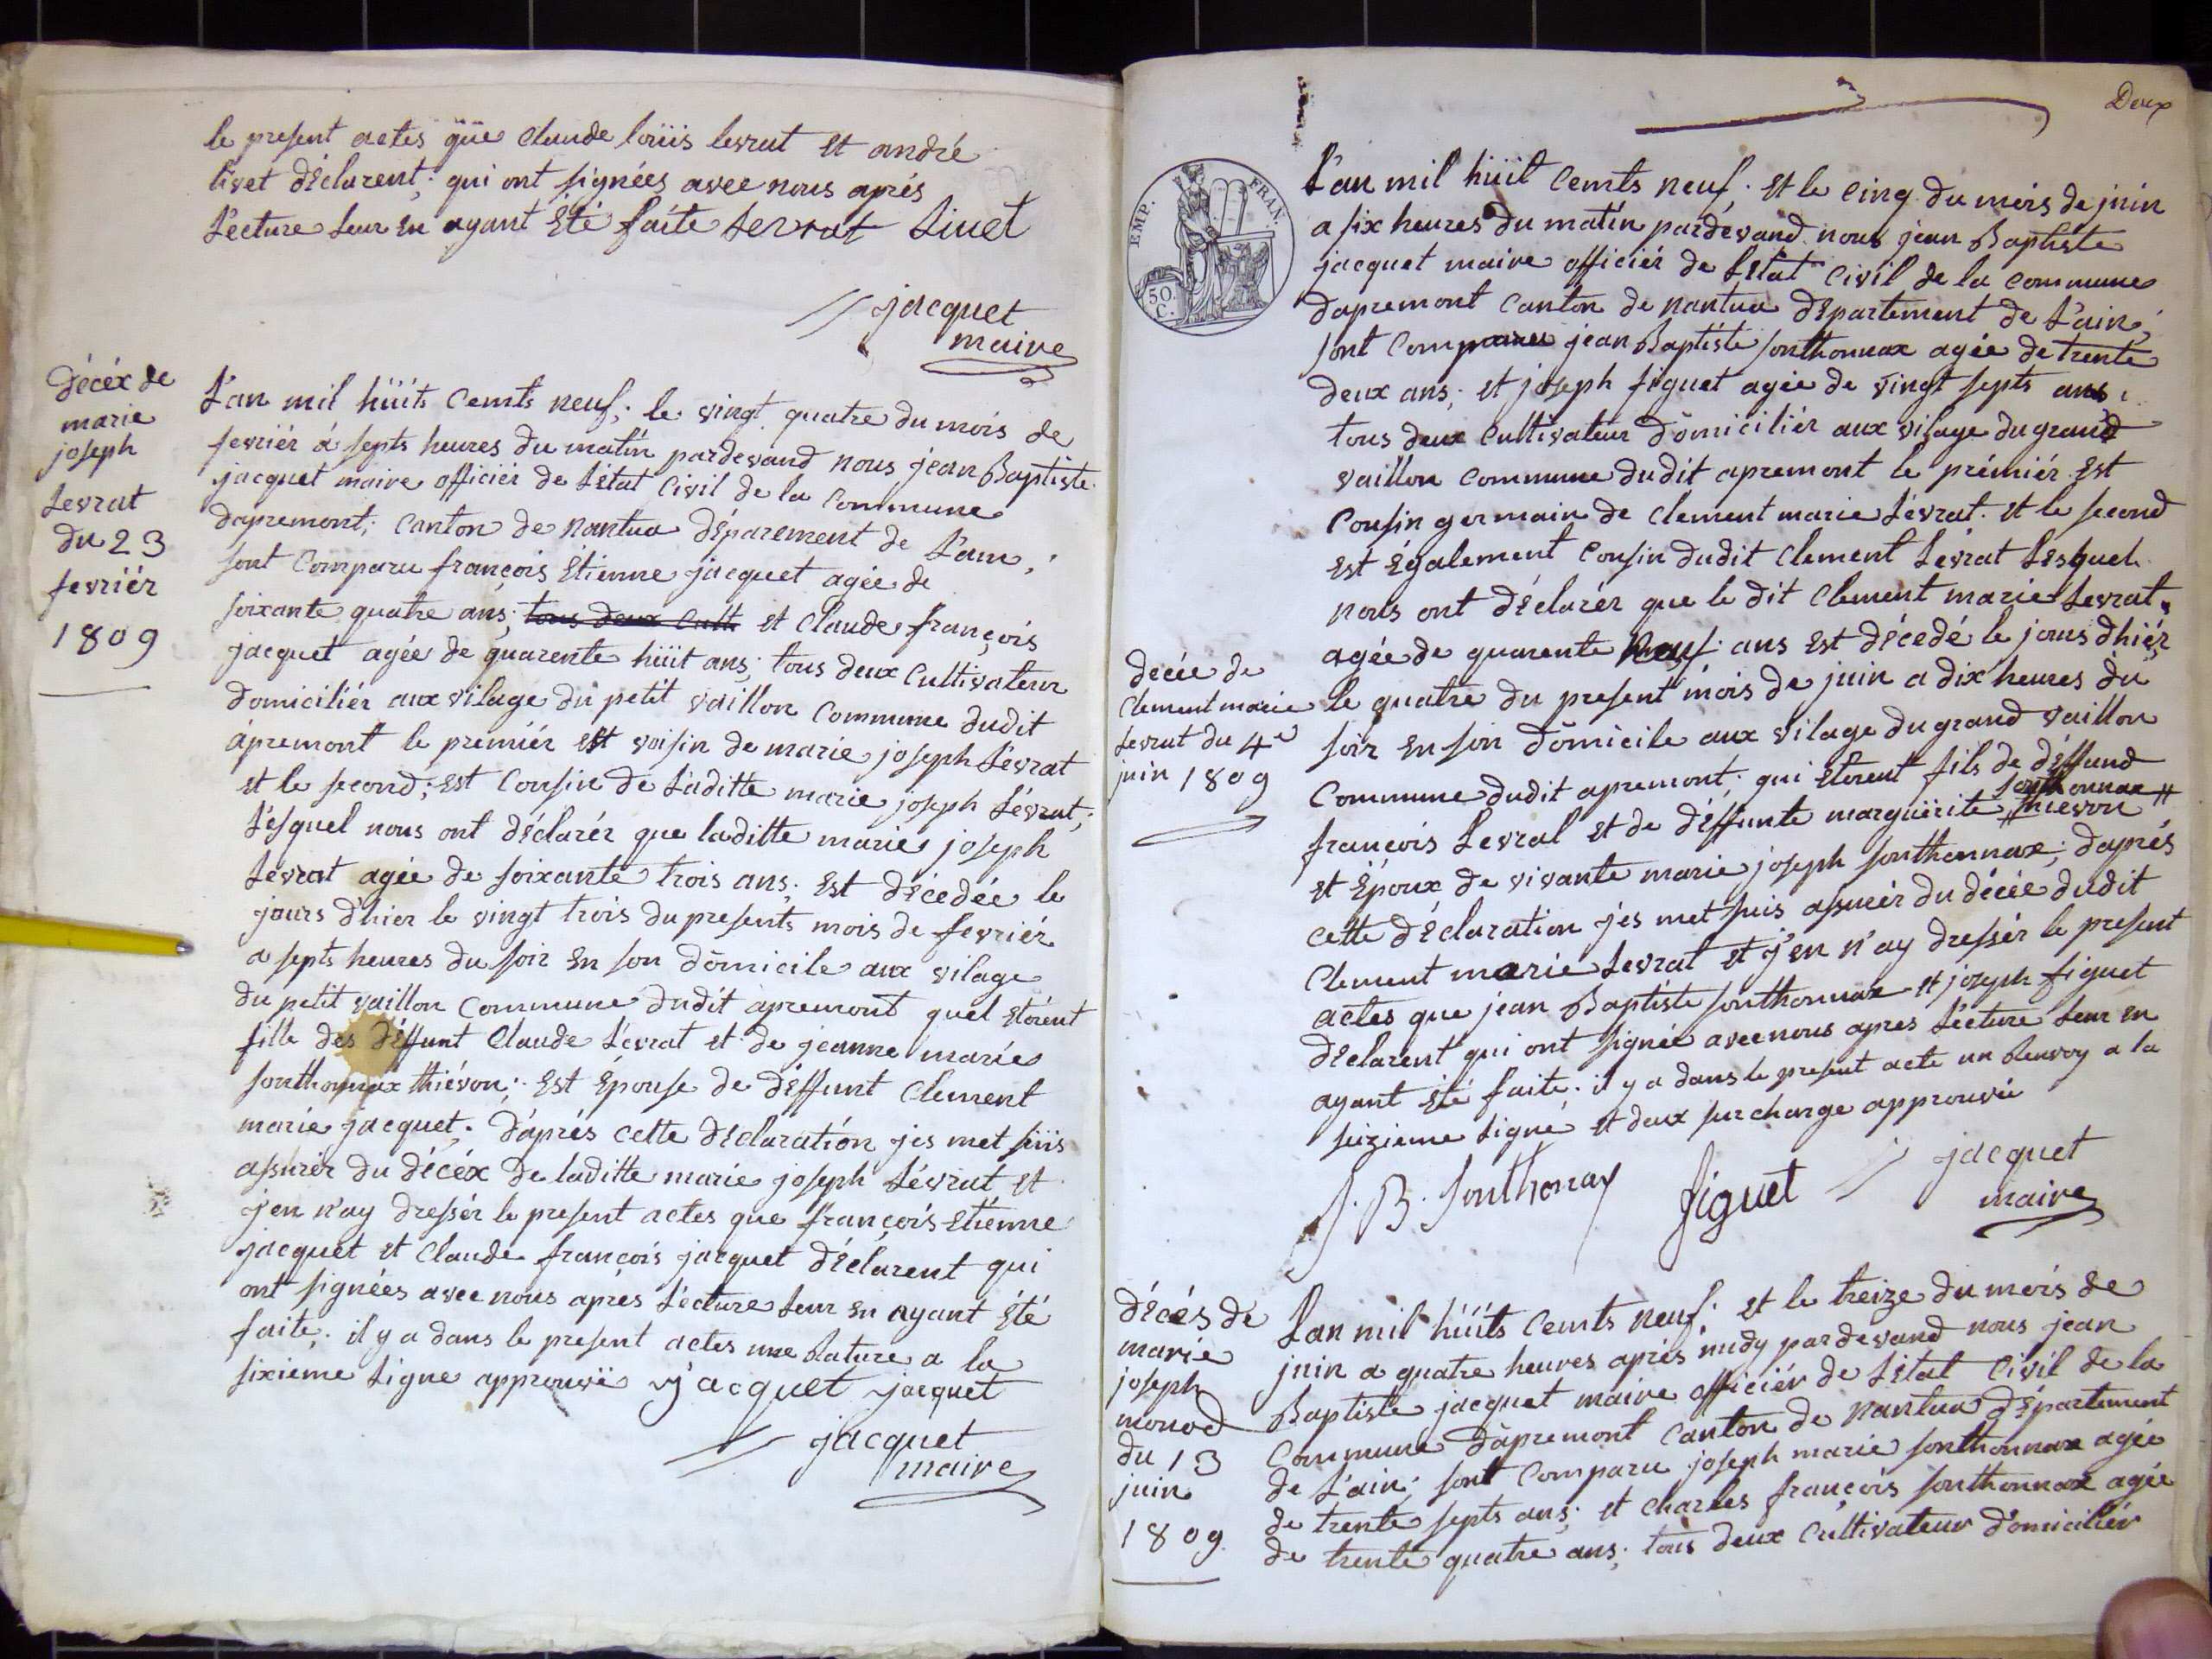 le present actes que Claude loüis levrat Et andré
livet déclarent; qui ont signées avec nous aprés
Lecture Leur En ayant Eté faite Levrat Livet
jacquet
maire
Décéx de
marie
joseph
Levrat
du 23
fevriér
1809
L'an mil hüits Cemts neuf; le vingt quatre du mois de
fevriér á septs heures du matin pardevand nous jean Baptiste
jacquet maire officiér de L'état Civil de la Commune
dapremont; Canton de nantua déparement de L'ain;
sont Comparu françois Etienne jacquet agée de
soixante quatre ans; tous deux Cult et Claude françois
jacquet agée de quarente hüit ans; tous deux Cultivateur
domiciliér aux vilage du petit vaillon Commune dudit
apremont le premiér est voisin de marie joseph Lévrat
et le second; est Cousin de Laditte marie joseph Lévrat;
Lésquel nous ont déclarér que laditte marie joseph
Levrat agée de soixante trois ans; Est décedée le
jours d'hier le vingt trois du presents mois de fevriér
a septs heures du soir En son domicile aux vilage
du petit vaillon Commune dudit apremont quel Etórent
fille des déffunt Claude Lévrat et de jeanne marie
sonthonnax thiévon; Est Epouse de déffunt Clement
marie jacquet; d'aprés cette déclaration jes met süis
assurér du décéx de laditte marie joseph Lévrat Et
j'en n'ay dressér le present actes que françois Etienne
jacquet et Claude françois jacquet déclarent qui
ont signées avec nous aprés Lécture Leur En ayant Eté
faite; il y a dans le present actes une Rature a la
sixieme Ligne approuvé jacquet jacquet
jacquet
maire
Deux
EMP. FRAN.
50. C.
L'an mil hüit Cemts neuf; Et le cinq du mois de juin
a six heures du matin pardevand nous jean Baptiste
jacquet maire officiér de L'état Civil de la Commune
dapremont Canton de nantua département de L'ain;
sont Comparu jean Baptiste sonthonnax agée de trente
deux ans; et joseph figuet agée de vingt septs ans;
tous deux Cultivateur domiciliér aux vilage du grand
vaillon Commune dudit apremont le prémiér Est
Cousin germain de Clement marie Lévrat. et le second
est Également Cousin dudit Clement Lévrat Lesquel
nous ont déclarér que le dit Clement marie Levrat
agée de quarente Neuf ans Est décedé le jours dhiér
le quatre du present mois de juin a dix heures du
soir En son domicile aux vilage du grand vaillon
Commune dudit apremont; qui Etorent fils de déffund
sonthonnax
françois Levrat et de déffunte margüerite thievon
et Époux de vivante marie joseph sonthonnax; d'aprés
cette déclaration jes met suis assurér du décée dudit
Clement marie Levrat et j'en n'ay dressér le present
actes que jean Baptiste sonthonnax et joseph figuet
déclarent qui ont signée avec nous apres Lécture Leur en
ayant Eté faite; il y a dans le present acte un Renvoy a la
seizieme Ligne et deux surcharge approuvée
J. B. Sonthonax figuet jacquet
maire
decée de
Clement marie
Levrat du 4e
juin 1809
Décés de
marie
joseph
monod
du 13
juin
1809.
L'an mil hüits Cemts neuf; et le treize du mois de
juin a quatre heures aprés midy pardevand nous jean
Baptiste jacquet maire officiér de L'état Civil de la
Commune dapremont Canton de nantua département
de L'ain; sont Comparu joseph marie sonthonnax agée
de trente septs ans; et Charles françois sonthonnax agée
de trente quatre ans; tous deux Cultivateur domiciliér